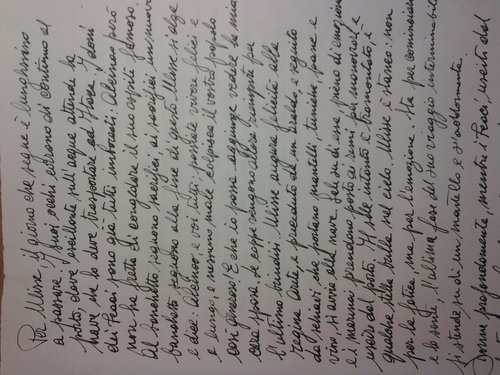 Per Ulisse il giorno che segue è lunghissimo
a passare. I suoi occhi corrono di continuo al
porto, dove oscillante sull'acqua attende la
nave che lo deve trasportare ad Itaca. I doni
dei Feaci sono già tutti imbarcati. Alcinoo però
non ha fretta di congedare il suo ospite famoso.
Al banchetto seguono sacrifici, ai sacrifici un nuovo
banchetto
e dice: Alcinoo, e voi tutti, possiate vivere felici e
a lungo, e nessun male colpisca il vostro popolo
così generoso. E che io possa giungere vedere la mia
cara sposa. Le coppe vengono allora riempite per
l'ultimo brindisi. Ulisse augura felicità alla
regina Arete, e preceduto da un araldo, e seguito
da schiavi che portano mantelli tuniche pane e
vino si avvia alla nave. Sale su di essa pieno di emozione
e i marinai prendono posto ai remi per manovrare e
uscire dal porto. Il sole intanto è tramontato, e
qualche stella brilla nel cielo. Ulisse è stanco: non
per la fatica, ma per l'emozione. Sta per cominciare
e lo sente, l'ultima fase del suo viaggio interminabile
si stende su di un mantello e s'addormenta.
Dorme profondamente, mentre i Feaci usciti dal